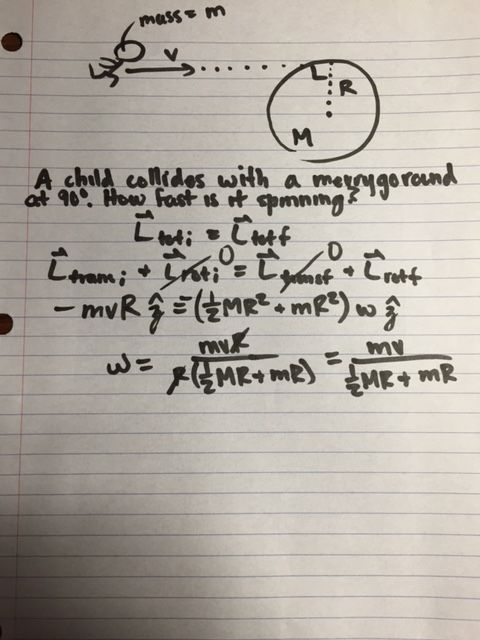 mass = m
v
L R
M
A child collides with a merrygoround
at 90°. How fast is it spinning?
L⃗tot i = L⃗tot f
L⃗trans i + L⃗rot i 0 = L⃗trans f 0 + L⃗rot f
- mvR ẑ = -(½MR² + mR²) ω ẑ
ω = mvR / R(½MR + mR) = mv / ½MR + mR